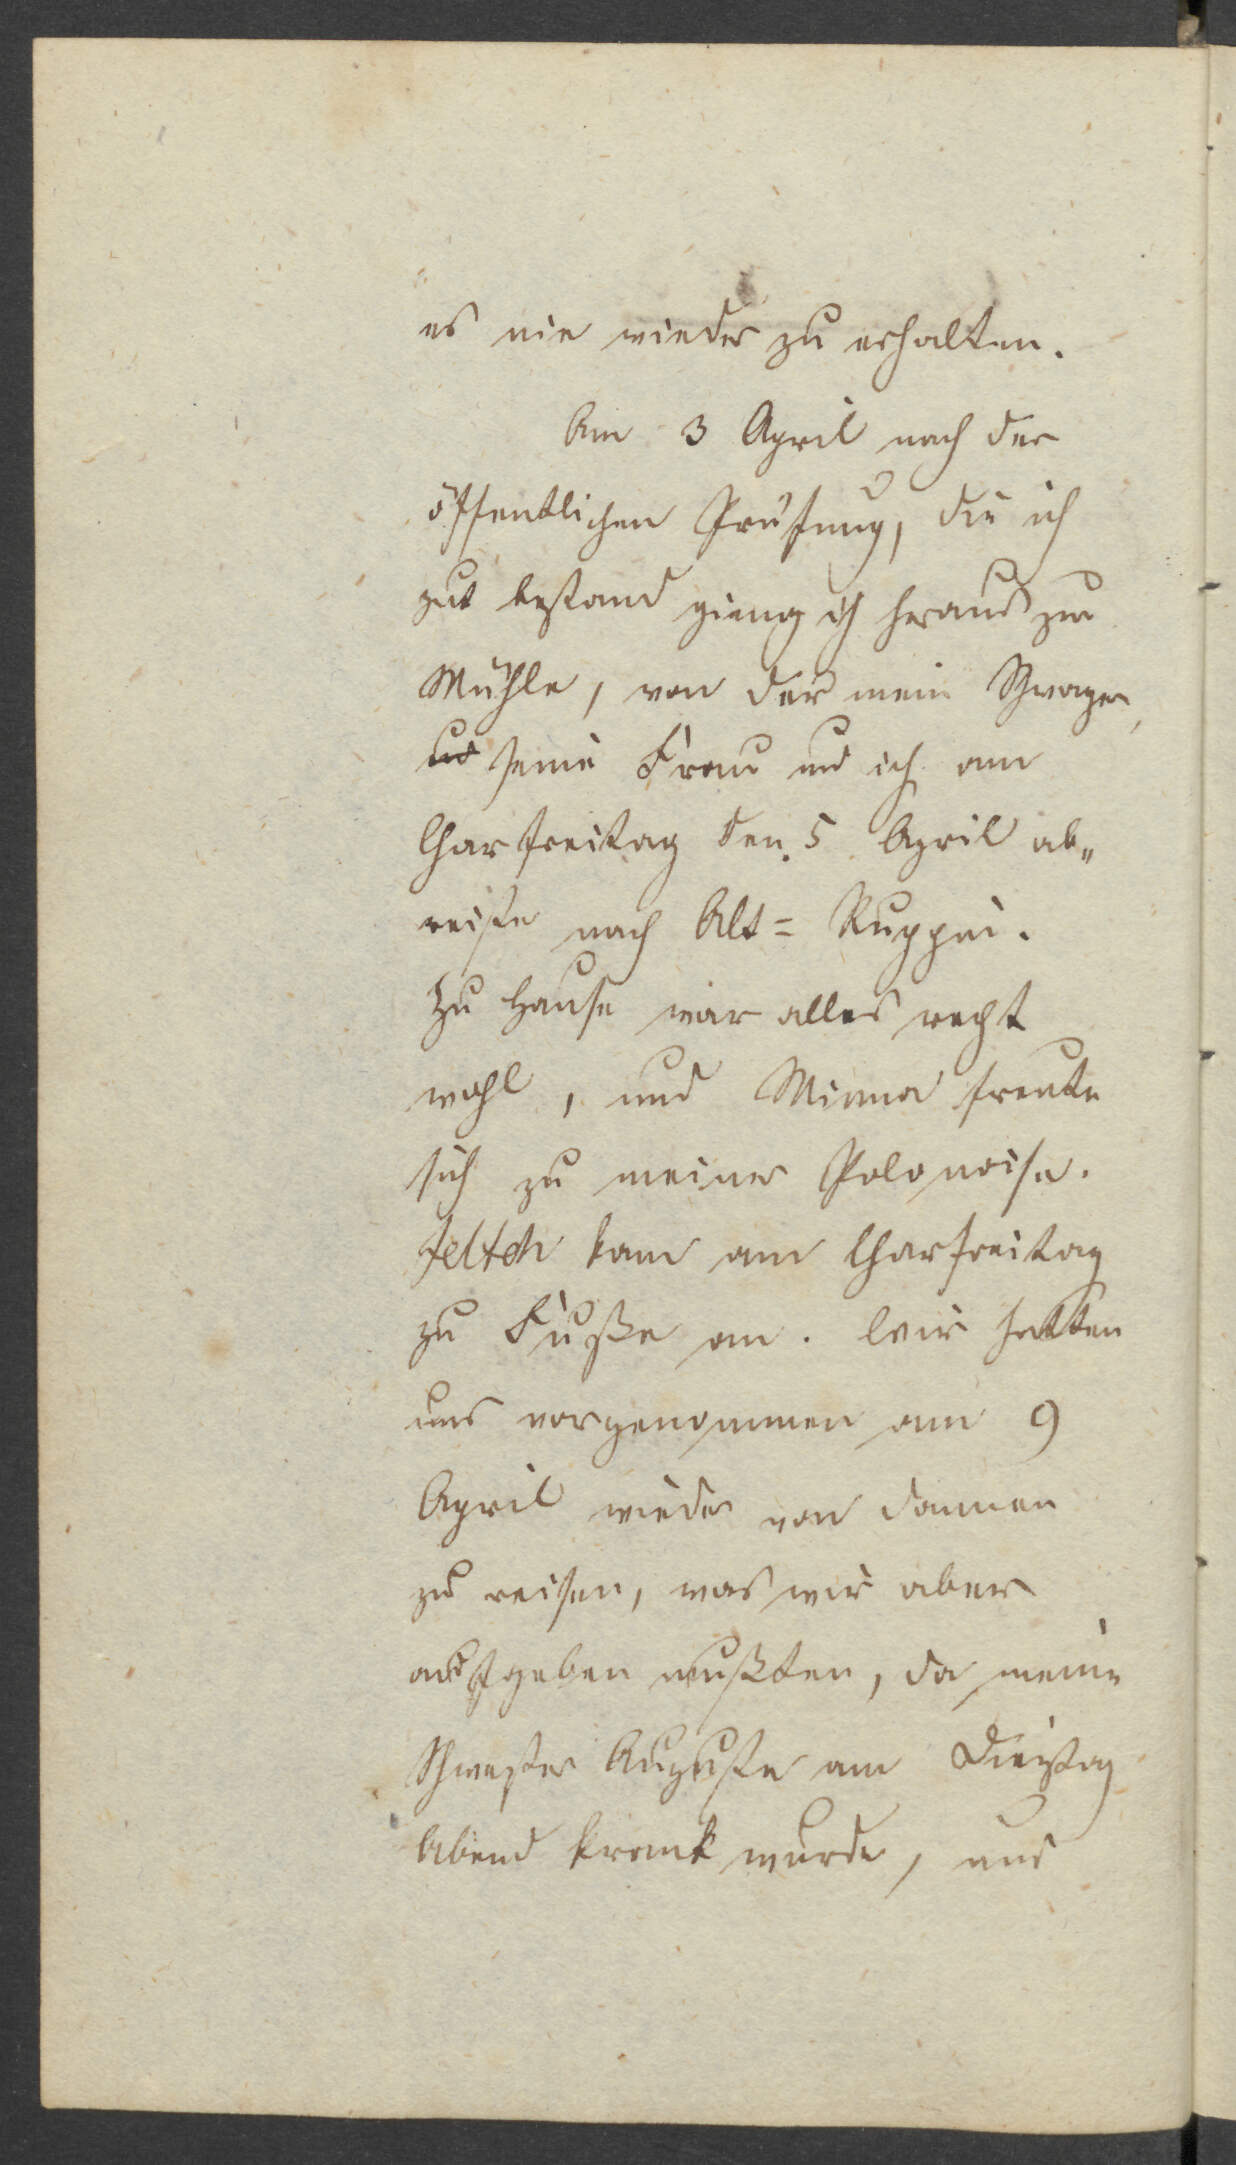 es nie wieder zu erhalten.
Am 3 April nach der
öffentlichen Prüfung, die ich
gut bestand gieng ich heraus zur
Mühle, von der mein Schwager,
und seine Frau und ich am
Charfreitag den 5 April ab„
reiste nach Alt= Ruppin.
Zu Hause war alles recht
wohl, und Minna freute
sich zu meiner Polonoise.
kam am Charfreitag
zu Fuße an. Wir hatten
uns vorgenommen am 9
April wieder von dannen
zu reisen, was wir aber
aufgeben mußten, da meine
Schwester Auguste am Dinstag
Abend krank wurde, und